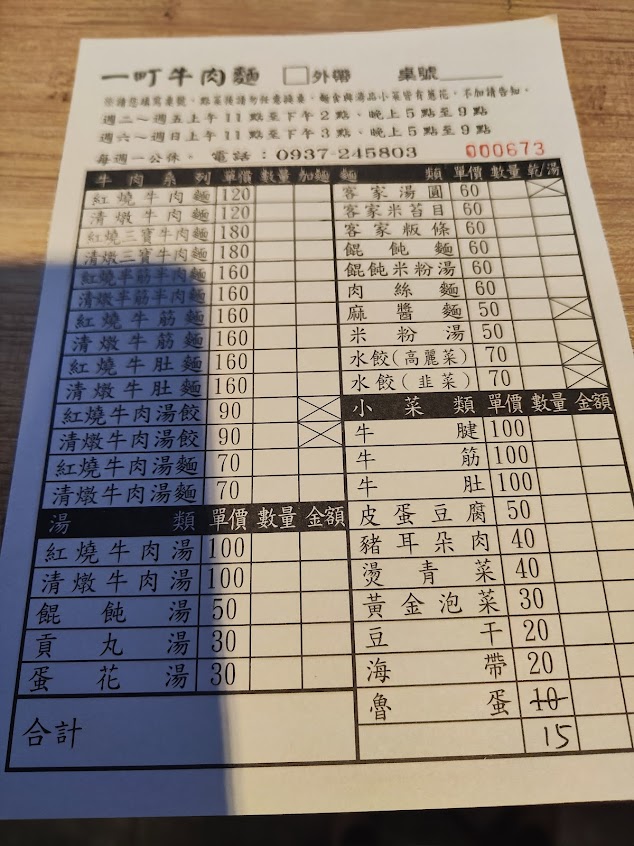 一町牛肉麵 外帶 桌號
週二～週五上午11點至下午2點，晚上5點至9點
週六～週日上午11點至下午3點，晚上5點至9點
每週一公休。 電話：0937-245803 000673
牛肉系列 單價 數量 加麵
紅燒牛肉麵 120
清燉牛肉麵 120
紅燒三寶牛肉麵 180
清燉三寶牛肉麵 180
紅燒半筋半肉麵 160
清燉半筋半肉麵 160
紅燒牛筋麵 160
清燉牛筋麵 160
紅燒牛肚麵 160
清燉牛肚麵 160
紅燒牛肉湯餃 90
清燉牛肉湯餃 90
紅燒牛肉湯麵 70
清燉牛肉湯麵 70
湯類 單價 數量 金額
紅燒牛肉湯 100
清燉牛肉湯 100
餛飩湯 50
貢丸湯 30
蛋花湯 30
合計
麵類 單價 數量 乾/湯
客家湯圓 60
客家米苔目 60
客家粄條 60
餛飩麵 60
餛飩米粉湯 60
肉絲麵 60
麻醬麵 50
米粉湯 50
水餃(高麗菜) 70
水餃(韭菜) 70
小菜類 單價 數量 金額
牛腱 100
牛筋 100
牛肚 100
皮蛋豆腐 50
豬耳朵肉 40
燙青菜 40
黃金泡菜 30
豆干 20
海帶 20
魯蛋 10
15